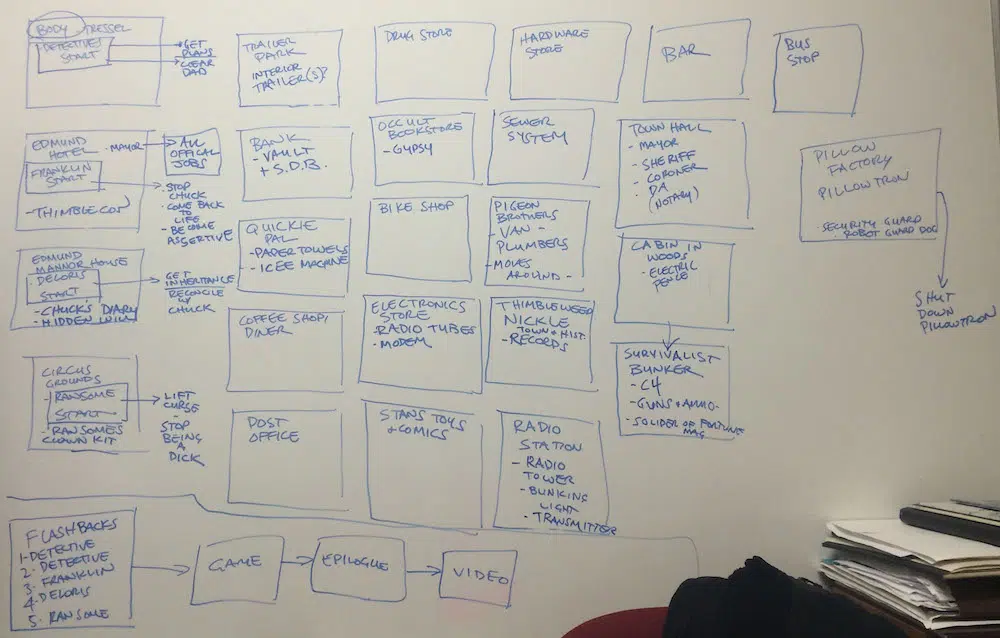 BODY - TRESSEL
DETECTIVES
START
GET
PLANS
CLEAR
DAD
TRAILER
PARK
INTERIOR
TRAILER(S)?
DRUG STORE
HARDWARE
STORE
BAR
BUS
STOP
EDMUND
HOTEL
- MAYOR
FRANKLIN
START
- THIMBLECON
ALL
OFFICAL
JOBS
- STOP
CHUCK
- COME BACK
TO
LIFE
- BECOME
ASSERTIVE
BANK
- VAULT
+ S.D.B.
OCCULT
BOOKSTORE
- GYPSY
SEWER
SYSTEM
TOWN HALL
- MAYOR
- SHERIFF
- CORONER
- DA
(NOTARY)
PILLOW
FACTORY
PILLOWTRON
- SECURITY GUARD
- ROBOT GUARD DOG
SHUT
DOWN
PILLOWTRON
EDMUND
MANNOR HOUSE
DELORIS
START
- CHUCK'S DIARY
- HIDDEN WILL
GET
INHERITANCE
RECONCILE
W/
CHUCK
QUICKIE
PAL
- PAPER TOWELS
- ICEE MACHINE
BIKE SHOP
PIGEON
BROTHERS
- VAN -
PLUMBERS
- MOVES
AROUND -
CABIN IN
WOODS
- ELECTRIC
FENCE
COFFEE SHOP/
DINER
ELECTRONICS
STORE
- RADIO TUBES
- MODEM
THIMBLEWEED
NICKLE
TOWN + HIST.
- RECORDS
SURVIVALIST
BUNKER
- C4
- GUNS + AMMO -
- SOLIDER OF FORTUNE
MAG
CIRCUS
GROUNDS
- RANSOME
START
- RANSOMES
CLOWN KIT
LIFT
CURSE
-
STOP
BEING
A
DICK
POST
OFFICE
STANS TOYS
+ COMICS
RADIO
STATION
- RADIO
TOWER
- BLINKING
LIGHT
- TRANSMITTER
FLASHBACKS
1 - DETECTIVE
2 - DETECTIVE
3 - FRANKLIN
4 - DELORIS
5 - RANSOME
GAME
EPILOGUE
VIDEO